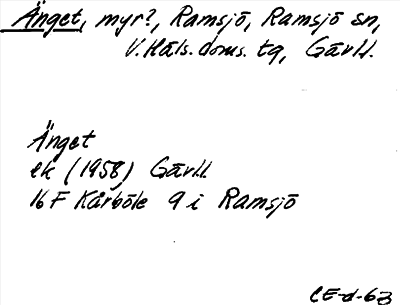 Änget, myr?, Ramsjö, Ramsjö sn,
V. Häls. doms. tg, Gävl l.
Änget
ek (1958) Gävl l
16 F Kårböle 9 i Ramsjö
CE-d-63